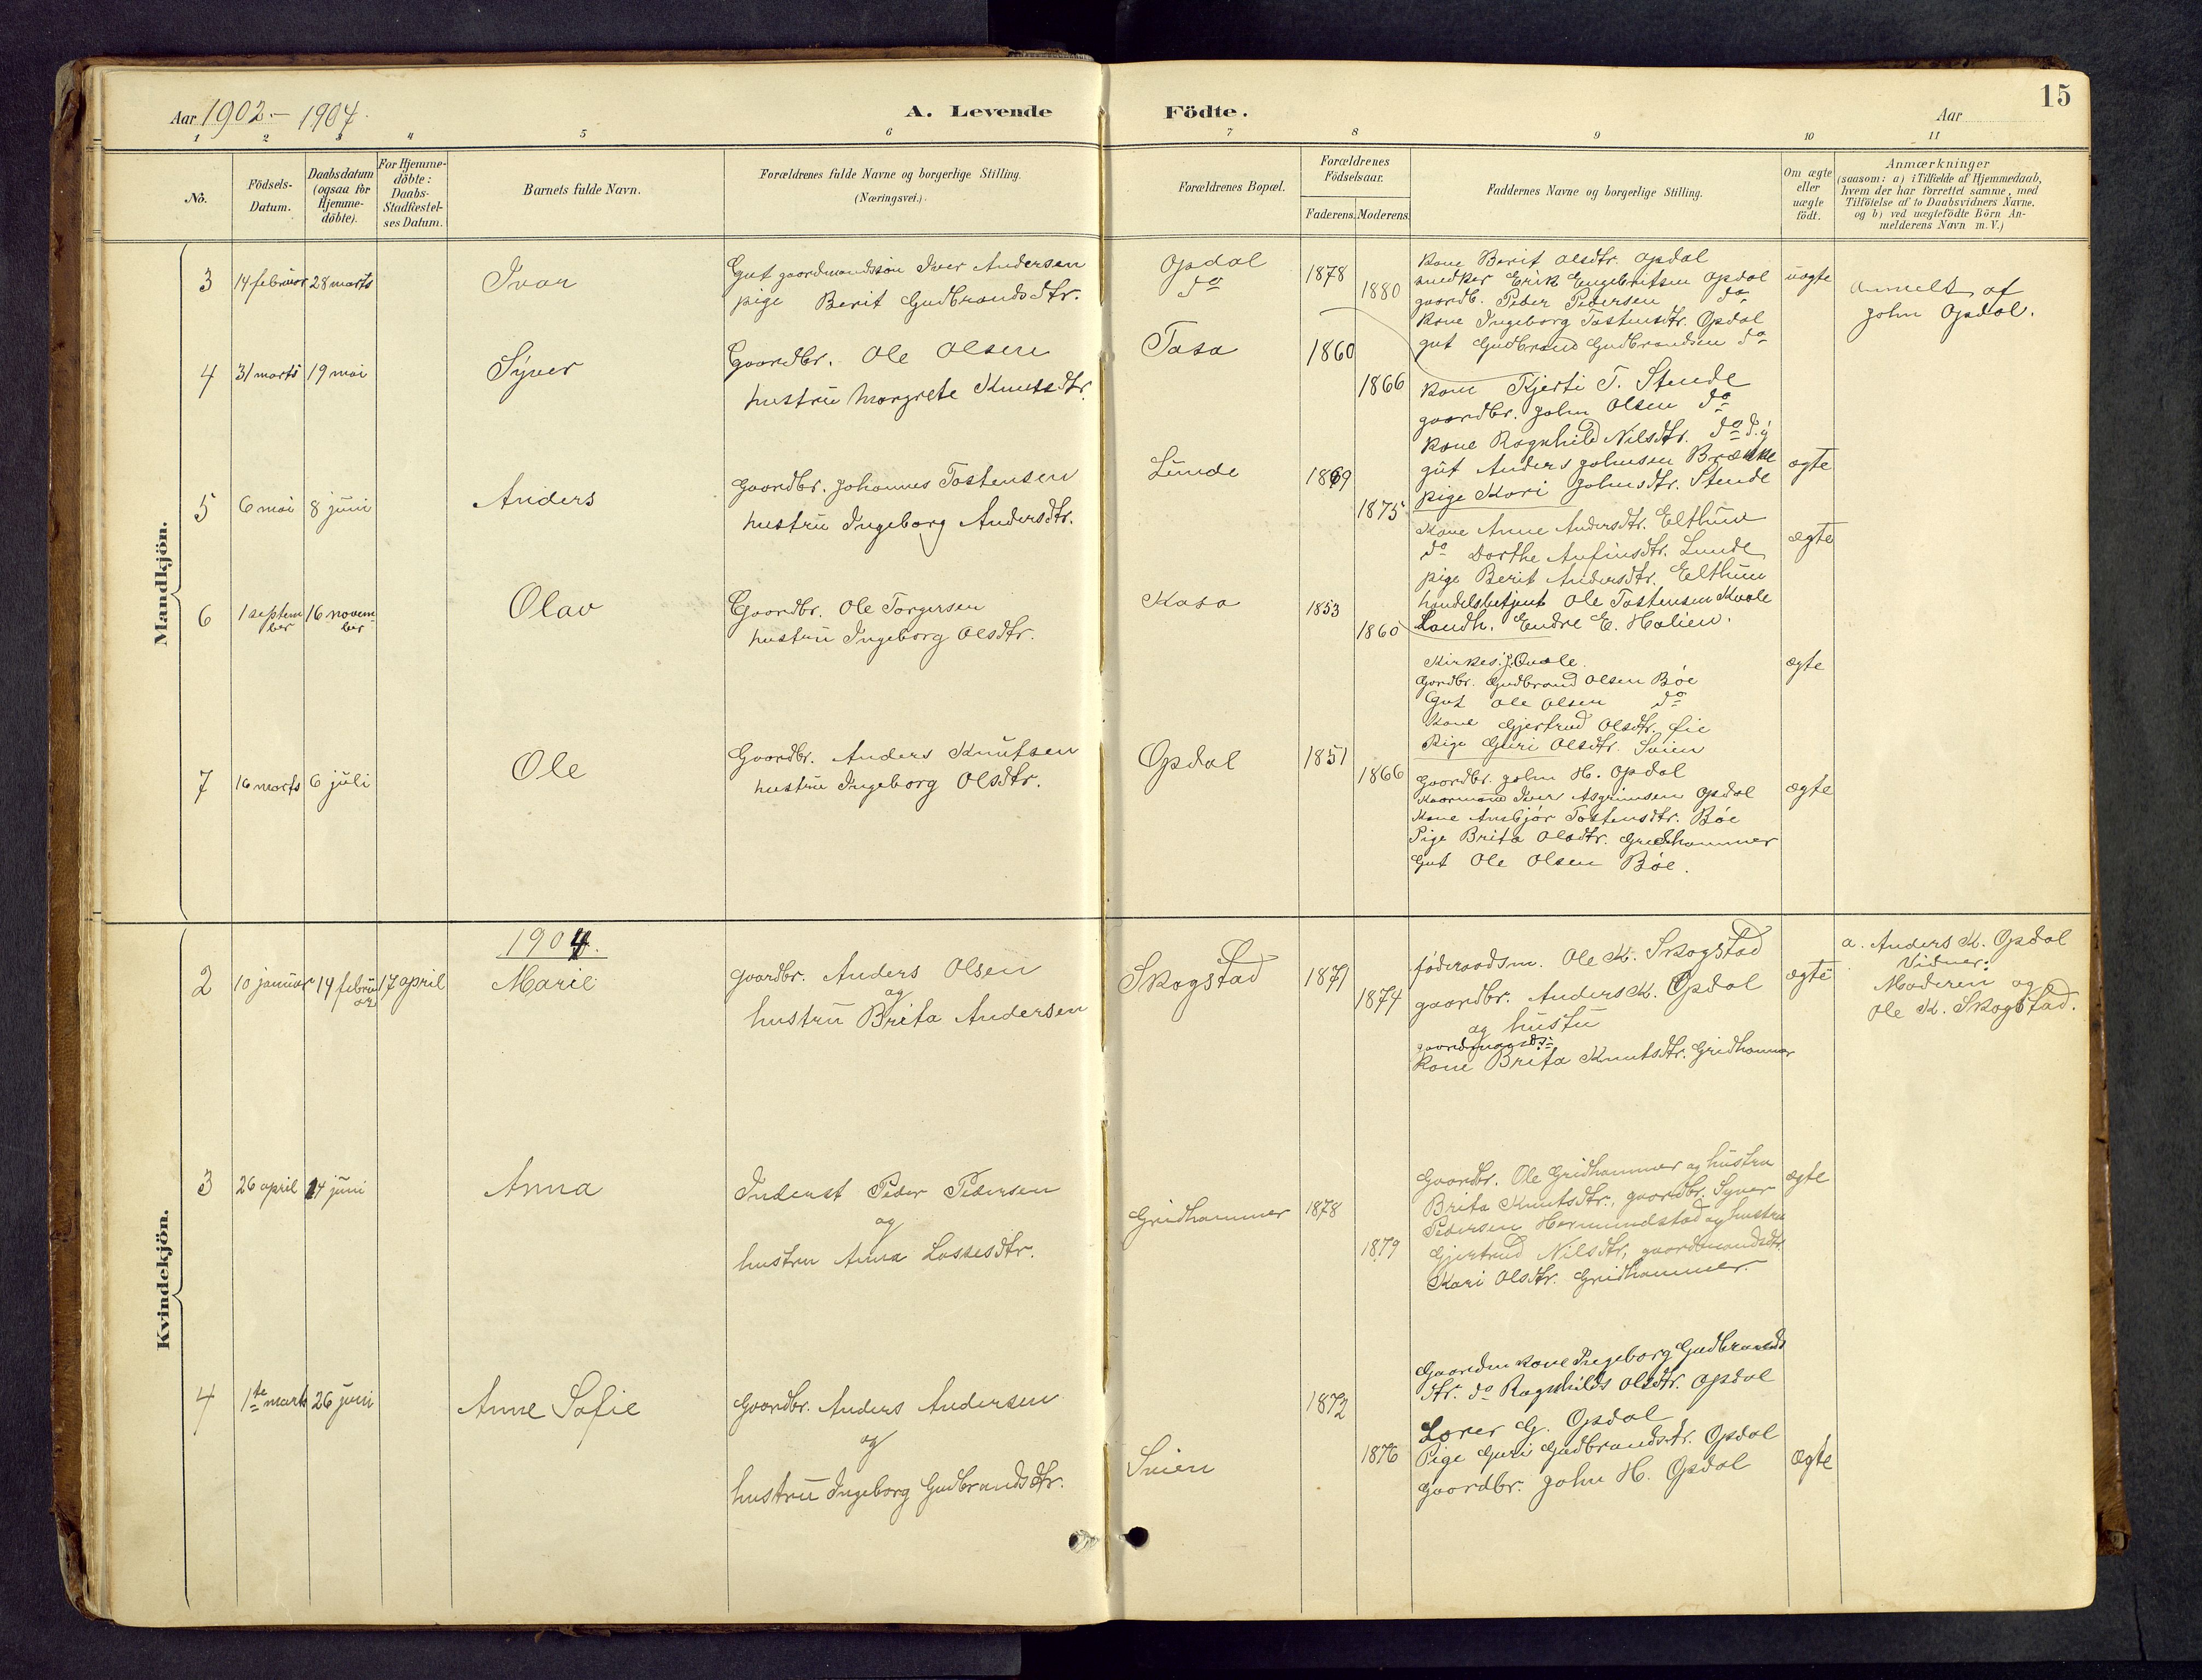 Aar 1902.- 1904.
A. Levende Födte.
Aar
15
1 2 3 4 5 6 7 8 9 10 11
No.
Födsels-Datum.
Daabsdatum (ogsaa for Hjemme-döbte).
For Hjemme-döbte: Daabs-Stadfæstel-ses Datum.
Barnets fulde Navn.
Forældrenes fulde Navne og borgerlige Stilling. (Næringsvei.)
Forældrenes Bopæl.
Forældrenes Födselsaar.
Faderens. Moderens.
Faddernes Navne og borgerlige Stilling.
Om ægte eller uægte födt.
Anmærkninger
(saasom: a) i Tilfælde af Hjemmedaab,
hvem der har forrettet samme, med
Tilföielse af to Daabsvidners Navne.
og b) ved uægtefödte Börn An-
melderens Navn m.V.)
Mandkjön.
3 14 februar 28 marts Ivar
Gut gaardmandssön Iver Andersen
pige Berit Gudbrandsdtr.
Opdal
do
1878
1880
Kone Berit Olsdtr. Opdal
snedker Erik Engebretsen Opdal
gaardb. Peder Pedersen do
Kone Ingeborg Tostensdtr. Opdal
gut Gudbrand Gudbrandsen do
uægte
Anmeldt af
John Opdal.
4 31 marts 19 mai Syver
Gaardbr. Ole Olsen
hustru Margrete Knutsdtr.
Tasa
1860
1866
Kone Kjersti T. Stende
gaardbr. John Olsen do
Kone Ragnhild Nilsdtr. do d.y
gut Anders Johnsen Brække
pige Kari Johnsdtr. Stende
ægte
5 6 mai 8 juni Anders
Gaardbr. Johannes Tostensen
hustru Ingeborg Andersdtr.
Lunde
1869
1875
Kone Anne Andersdtr. Elthun
do Dorthe Anfinsdtr. Lunde
pige Berit Andersdtr. Elthun
handelsbetjent Ole Tostensen Kvale
Landh. Endre E. Halien.
ægte
6 1 septem
ber
16 novem
ber
Olav
Gaardbr. Ole Torgersen
hustru Ingeborg Olsdtr.
Kasa
1853
1860
Kirkes. J. Quale.
Gardbr. Gudbrand Olsen Böe
Gut Ole Olsen do
Kone Gjertrud Olsdtr. Lie
Pige Guri Olsdtr. Svien
ægte
7 16 marts 6 juli Ole
Gaardbr. Anders Knutsen
hustru Ingeborg Olsdtr.
Opdal
1851
1866
Gaardbr. John H. Opdal
Kaarmand Iver Asgrimsen Opdal
Kone Ambjör Tostensdtr. Böe
Pige Brita Olsdtr. Gridhammer
Gut Ole Olsen Böe.
ægte
Kvindekjön.
1904.
2 10 januar 14 febru
ar
17 april Marie
Gaardbr. Anders Olsen
og
hustru Brita Andersen
Skogstad
1871
1874
föderaadsm. Ole K. Skogstad
gaardbr. Anders K. Opdal
og hustu
Kone Brita Knutsdtr. Gridhammer
ægte
a. Anders K. Opdal
Vidner:
Moderen og
Ole K. Skogstad.
3 26 april 14 juni Anna
Inderst Peder Pedersen
og
hustru Anna Lassesdtr.
Gridhammer
1878
1879
Gaardbr. Ole Gridhammer og hustru
Brita Knutsdtr., gaardbr. Syver
Pedersen Hermundstad og hustru
Gjertrud Nilsdtr, gaardmandsdtr.
Kari Olsdtr. Gridhammer.
ægte
4 1te marts 26 juni Anne Sofie
Gaardbr. Anders Andersen
og
hustru Ingeborg Gudbrandsdtr.
Svien
1872
1876
Gaardm kone Ingeborg Gudbrands
dtr. do Ragnhilds Olsdtr. Opdal
Lærer G. Opdal
Pige Guri Gudbrandsdtr. Opdal
Gaardbr. John H. Opdal
Ægte